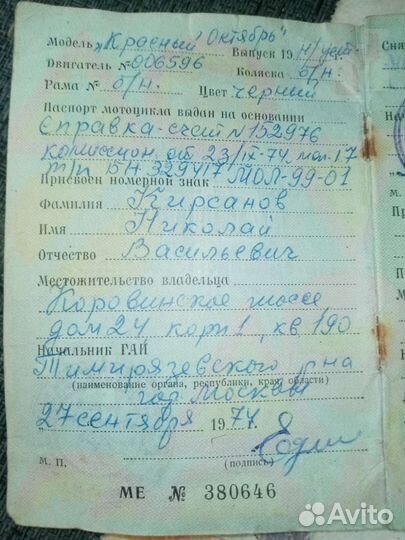 Модель „Красный Октябрь" Выпуск 19 н/уст.
Двигатель № 006596 Коляска б/н.
Рама № б/н. Цвет черный
Паспорт мотоцикла выдан на основании
Справка-счет N152976
комиссион. от 23/IX-74, маг. 17
т/п БН 329417
Присвоен номерной знак МОЛ-99-01
Фамилия Кирсанов
Имя Николай
Отчество Васильевич
Местожительство владельца
Коровинское шоссе
дом 24 корп 1, кв. 190
Начальник ГАИ
Тимирязевского р-на
(наименование органа, республики, края, области)
гор. Москвы
„27 сентября 1974 г.
(подпись)
М. П.
МЕ № 380646
Сня
Avito